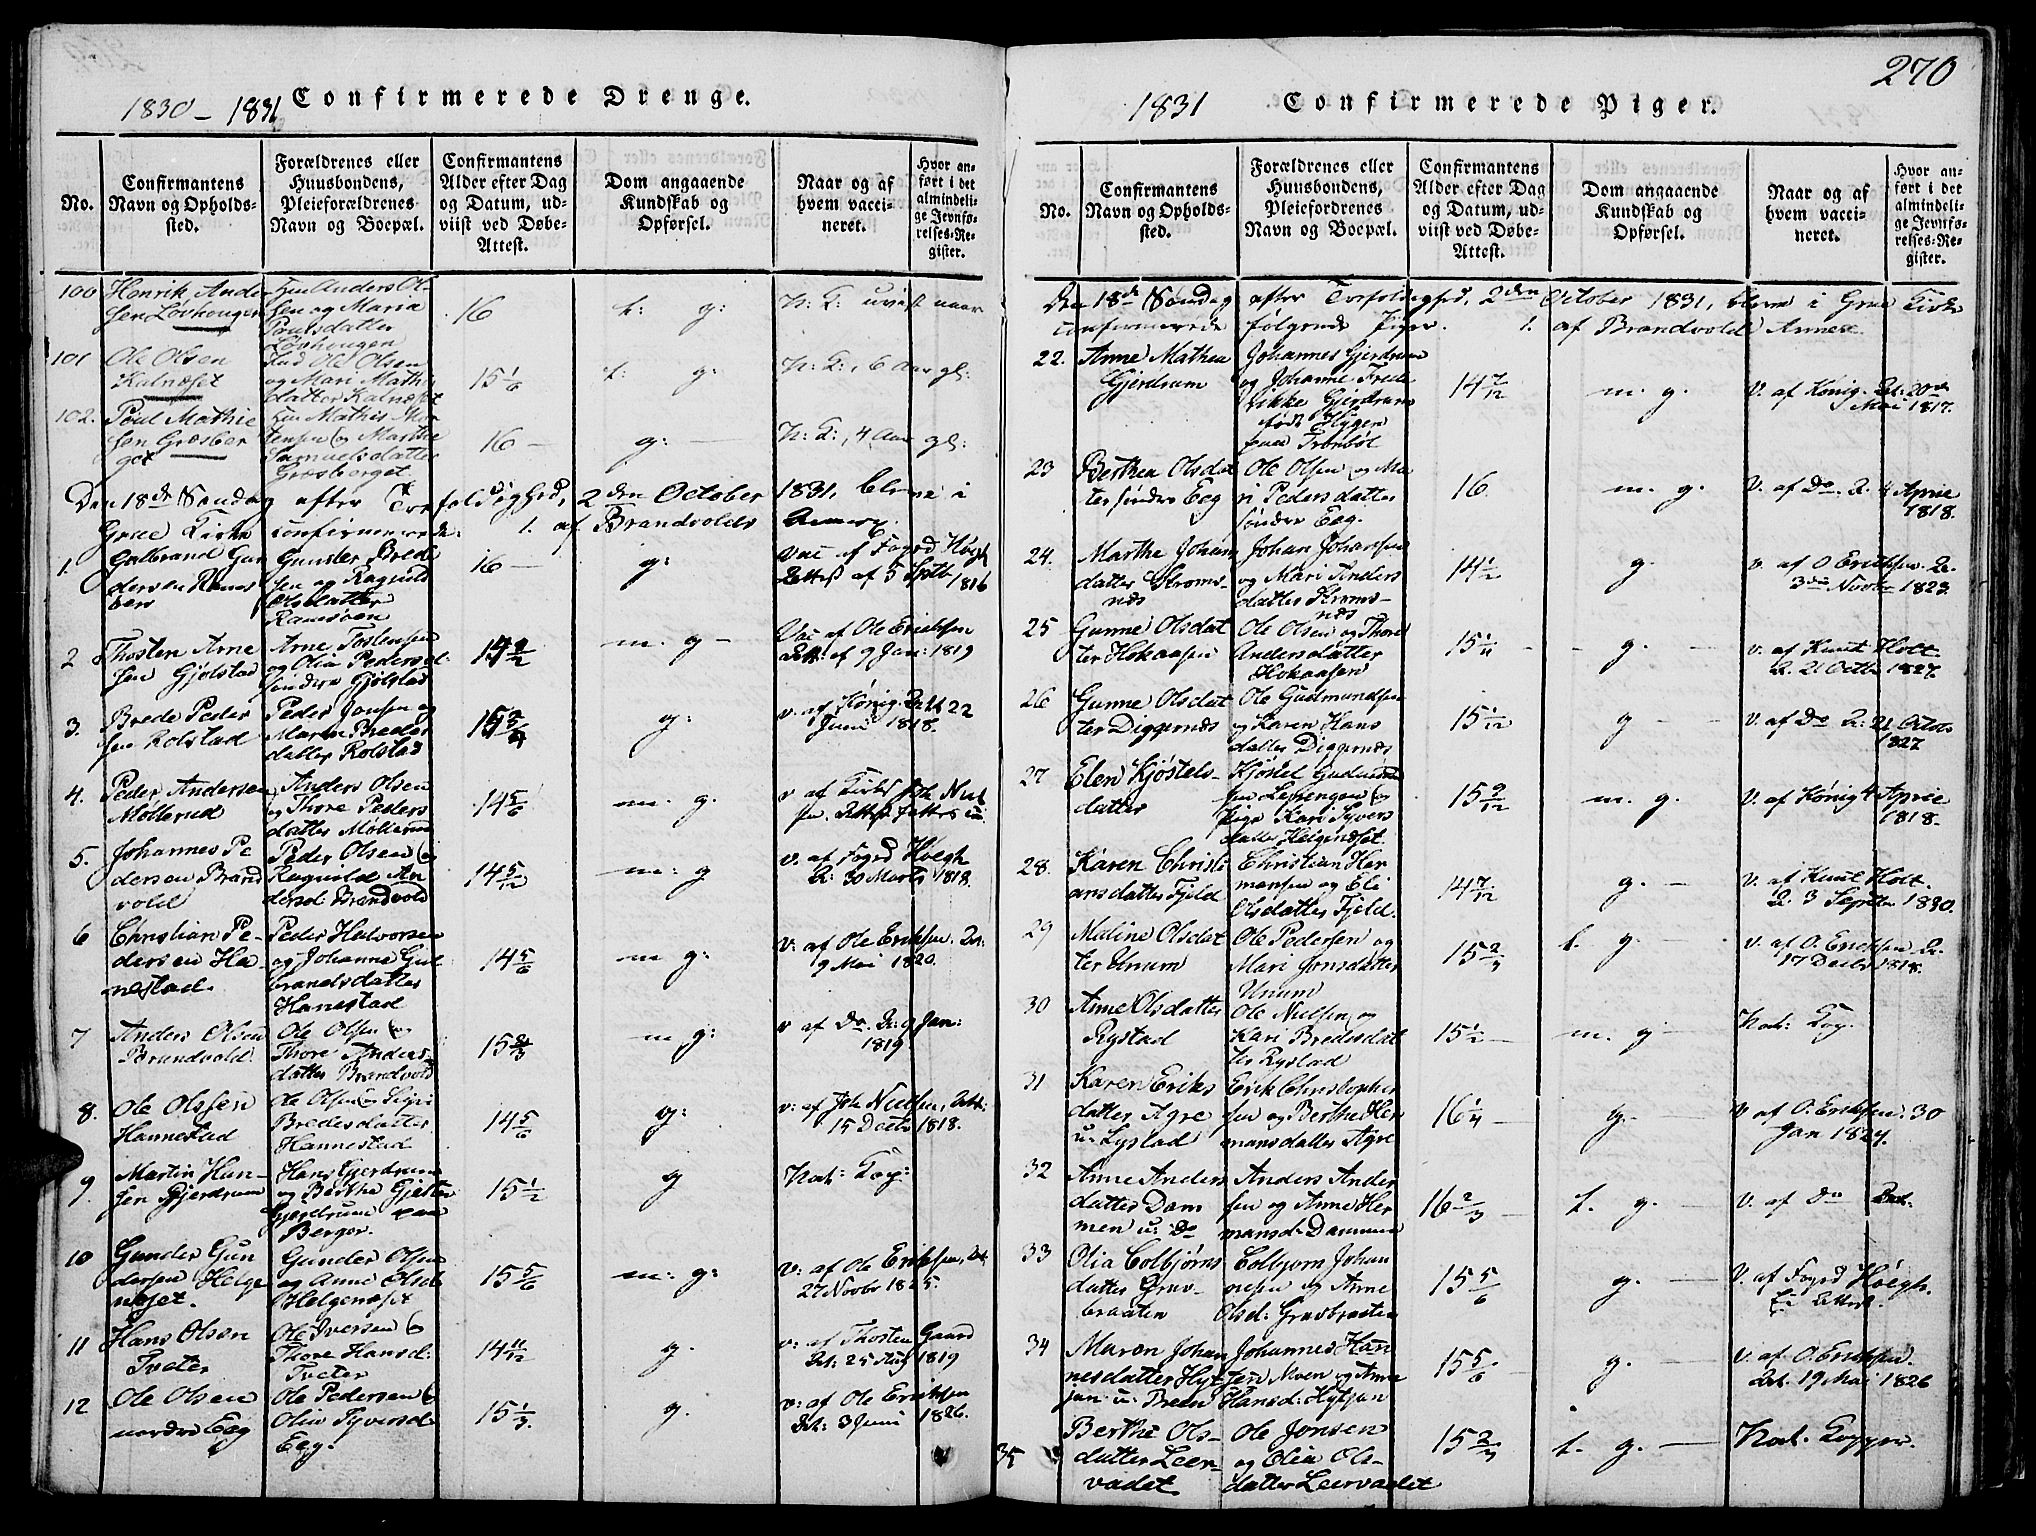 1830 - 1831 Confirmerede Drenge.
No.
Confirmantens Navn og Opholds-
sted.
Forældrenes eller
Huusbondens,
Pleieforældrenes
Navn og Boepæl.
Confirmantens
Alder efter Dag
og Datum, ud-
viist ved Døbe-
Attest.
Dom angaaende
Kundskab og
Opførsel.
Naar og af
hvem vacci-
neret.
Hvor an-
ført i det
almindeli-
ge Jevnfø-
relses-Re-
gister.
100 Henrik Ander
sen Løvhougen
Anders Ol
sen og Maria
Poulsdatter
Løvhougen
16
t: g:
N: K: uvist naar
101 Ole Olsen
Kalnæset
Ole Olsen
og Mari Mathis
datter Kalnæset
15 1/6
t: g:
N: K:, 6 Aar gl:
102. Poul Mathie
sen Græsber
get
Mathis Mor
tensen og Marthe
Samuelsdatter
Græsberget
16 -
g: -
N: K:, 4 Aar gl:
Den 18de Søndag efter Trefoldighed, 2den October 1831, bleve i
Grue Kirke confirmerede: 1. af Brandvolds Annex.
1. Gulbrand Gun
dersen Rames
Gunder Brede
sen og Ragnild
Olsdatter
16 -
g:
Vac af Fogd Høegh
Attest af 5 Septb 1816
2 Thosten Arne
sen Gjølstad
Arne Tostensen
og Olia Pedersd:
søndre Gjølstad
m. g -
Vac af Ole Eriksen
Att: af 9 Jan: 1819
3. Brede Peder
sen Rolstad
Peder Jonsen og
Maren Breder
datter Rolstad
g:
v. af König. Att 22
Juni 1818.
4. Peder Andersen
Møllerud
Anders Olsen
og Thore Peders
datter Møllerud
14 5/6
m. g.
5. Johannes Pe
dersen Brand
vold
Peder Olsen og
Ragnild An
dersd: Brandvold
14 5/12
m: g
v. af Fogd Høegh
A: 30 Marts 1818.
6 Christian Pe-
dersen Ha-
nestad.
Peder Halvorsen
og Johanne Gul
brandsdatter
Hanestad
14 5/6
m g:
v: af Ole Eriksen. Att:
9 Mai 1820.
7 Anders Olsen
Brandvold
Ole Olsen og
Thore Anders
datter Brandvold
m g:
v af Do A: 9 Jan:
1819
8. Ole Olsen
Hannestad
Ole Olsen og Sigri
Bredesdatter
Hannestad
14 5/6
g:
v: af Joh Nielsen, Att:
15 Decbr 1818.
9. Martin Han-
sen Gjerdrum
Hans Gjerdrum
og Berthe
Gjerdrum paa
Berger.
15 1/2
g
Nat: Kop:
10 Gunder Gun
dersen Helge
næset.
Gunder Olsen
og Anne Olsd:
Helgenæset
15 5/6
m: g:
v: af Ole Eriksen, Att
27 Novbr 1825.
11 Hans Olsen
Tveter
Ole Iversen og
Thore Hansd:
Tveter
14 11/12
g.
v: af Thosten Gaard
Att: 25 Aug 1819
12 Ole Olsen
nordre Eeg
Ole Pedersen og
Olia Syversd
Eeg.
15 1/3
g.
v: af Ole Eriksen
Att: 3 Juni 1826.
1831 Confirmerede Piger.
270
No.
Confirmantens
Navn og Opholds-
sted.
Forældrenes eller
Huusbondens,
Pleieforældrenes
Navn og Boepæl.
Confirmantens
Alder efter Dag
og Datum, ud-
viist ved Døbe-
Attest.
Dom angaaende
Kundskab og
Opførsel.
Naar og af
hvem vacci-
neret.
Hvor an-
ført i det
almindeli-
ge Jevnfø-
relses-Re-
gister.
Den 18de Søndag efter Trefoldighed, 2den October 1831, bleve i Grue Kirke
confirmerede følgende Piger. 1. af Brandvolds Annex.
22. Anne Mathea
Gjerdrum
Johannes Gjerdrum
og Johanne Frede
rikke Gjerdrum
født Hygen
paa Trønbøl
14 7/12
m. g.
V. af König. Att: 20de
Mai 1817.
23 Berthea Olsdat
ter søndre Eeg
Ole Olsen og Ma
ri Pedersdatter
søndre Eeg.
16.
m. g.
V. af Do. A. 4 Aprie
1818.
24. Marthe Johans
datter Stroms-
næs
Johan Johansen
og Mari Anders
datter Stroms-
næs
14 1/2
g.
v. af O Eriksen. A.
3die Novbr 1823.
25 Gunne Olsdat
ter Hokaasen
Ole Olsen og Thore
Andersdatter
Hokaasen
g. -
v. af Knut Holt.
A. 21 Octbr 1827.
26 Gunne Olsdat
ter Diggernæs
Ole Gudmundsen
og Karen Hans
datter Diggernæs
15 1/12
g -
v. af Do A: 21 Octor
1827
27 Elen Kjøstels-
datter
Kjøstel Gudmund
sen Leerengen og
Pige Kari Syvers
datter Helgenæset.
m. g.
V. af König 4 Aprie
1818.
28. Karen Christi
ansdatter Fjeld
Christian Her
mansen og Eli
Olsdatter Fjeld.
14 7/12
g. -
v. af Knut Holt.
A. 3 Septbr 1830.
29 Maline Olsdat
ter Unum
Ole Pedersen og
Mari Jonsdatter
Unum
t. g. -
v. af O. Eriksen A.
17 Decbr 1818.
30 Anne Olsdatter
Rystad
Ole Nielsen og
Kari Bredesdat
ter Rystad
15 1/2 -
m. g -
Nat: Kop.
31 Karen Eriks
datter Agre
u. Lystad
Erik Christopher
sen og Berthe Her
mansdatter Agre
16 1/4 -
g. -
V af O. Eriksen: 30
Jan 1824.
32 Anne Anders
datter Dam
men u. Do
Anders Ander
sen og Anne Her
mansd: Dammen
16 2/3 -
t. g. -
V. af Do Att.
33 Olia Colbjørns
datter Græs-
braaten
Colbjørn Johan
nesen og Anne
Olsd: Græsbraaten
15 5/6
g. -
V. af Fogd Høegh.
34 Maren Johan
nesdatter Hyt-
jan u. Breen
Johannes Han
sen Moen og Anne
Hansd: Hytjan
15 5/6
g. -
v. af O. Eriksen.
Att. 19 Mai 1826
35 Berthe Ols-
datter Leer-
vadet.
Ole Jonsen
og Olia Ols-
datter Leervadet
t. g. -
Nat. Kopper.